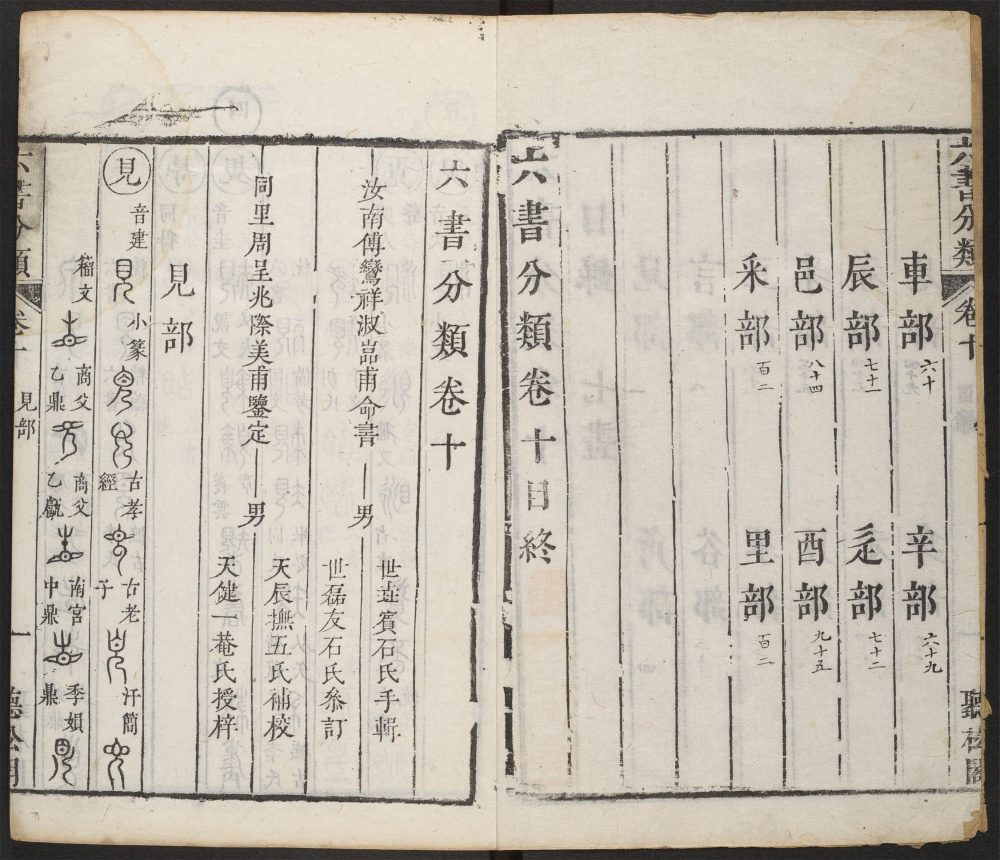 六書分類 卷十 聽松閣
車部 六十 辛部 六十九
辰部 七十一 辵部 七十二
邑部 八十四 酉部 九十五
釆部 百二 里部 百二
六書分類卷十目終
六書分類卷十
汝南傅鸞祥淑嵓甫命書 男 世垚賓石氏手輯
世磊友石氏叅訂
同里周呈兆際美甫鑒定 男 天辰撫五氏補校
天健一菴氏授梓
見部
見 音建 小篆 古孝經 古老子 汗簡
籀文 商父乙鼎 商父乙甗 南宮中鼎 季娟鼎
六書分類 卷十 見部 一 聽松閣